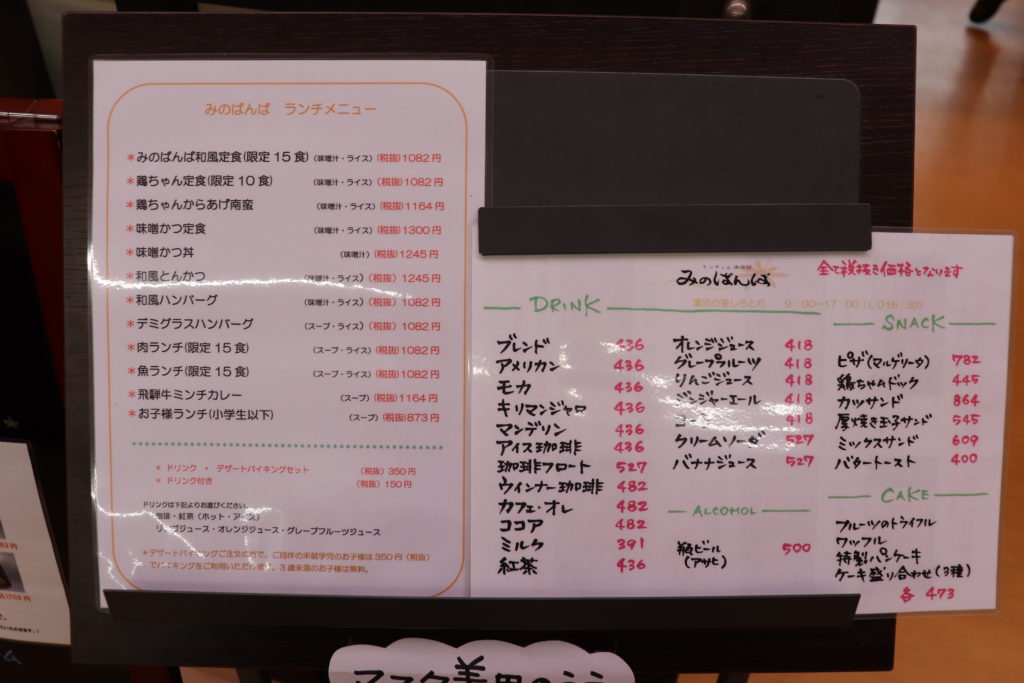 みのばんば ランチメニュー
*みのばんば和風定食(限定15食) (味噌汁・ライス) (税抜)1082円
*鶏ちゃん定食(限定10食) (味噌汁・ライス) (税抜)1082円
*鶏ちゃんからあげ南蛮 (味噌汁・ライス) (税抜)1164円
*味噌かつ定食 (味噌汁・ライス) (税抜)1300円
*味噌かつ丼 (味噌汁) (税抜)1245円
*和風とんかつ (味噌汁・ライス) (税抜)1245円
*和風ハンバーグ (味噌汁・ライス) (税抜)1082円
*デミグラスハンバーグ (スープ・ライス) (税抜)1082円
*肉ランチ(限定15食) (スープ・ライス) (税抜)1082円
*魚ランチ(限定15食) (スープ・ライス) (税抜)1082円
*飛騨牛ミンチカレー (スープ) (税抜)1164円
*お子様ランチ(小学生以下) (スープ) (税抜)873円
* ドリンク ・ デザートバイキングセット (税抜)350円
* ドリンク付き (税抜)150円
ドリンクは下記よりお選びください。
珈琲・紅茶(ホット・アイス)
リンゴジュース・オレンジジュース・グレープフルーツジュース
*デザートバイキングご注文の方で、ご同伴の未就学児のお子様は350円(税抜)
でバイキングをご利用いただけます。3歳未満のお子様は無料。
みのばんば
全て税抜き価格となります
清流の里しろとり 9:00~17:00(LO16:30)
DRINK
ブレンド 436
アメリカン 436
モカ 436
キリマンジャロ 436
マンデリン 436
アイス珈琲 436
珈琲フロート 527
ウィンナー珈琲 482
カフェ・オレ 482
ココア 482
ミルク 391
紅茶 436
オレンジジュース 418
グレープフルーツ 418
りんごジュース 418
ジンジャーエール 418
コーラ 418
クリームソーダ 527
バナナジュース 527
ALCOHOL
瓶ビール 500
(アサヒ)
SNACK
ピザ(マルゲリータ) 782
鶏ちゃんドック 445
カツサンド 864
厚焼き玉子サンド 545
ミックスサンド 609
バタートースト 400
CAKE
フルーツのトライフル
ワッフル
特製パンケーキ
ケーキ盛り合わせ(3種)
各 473